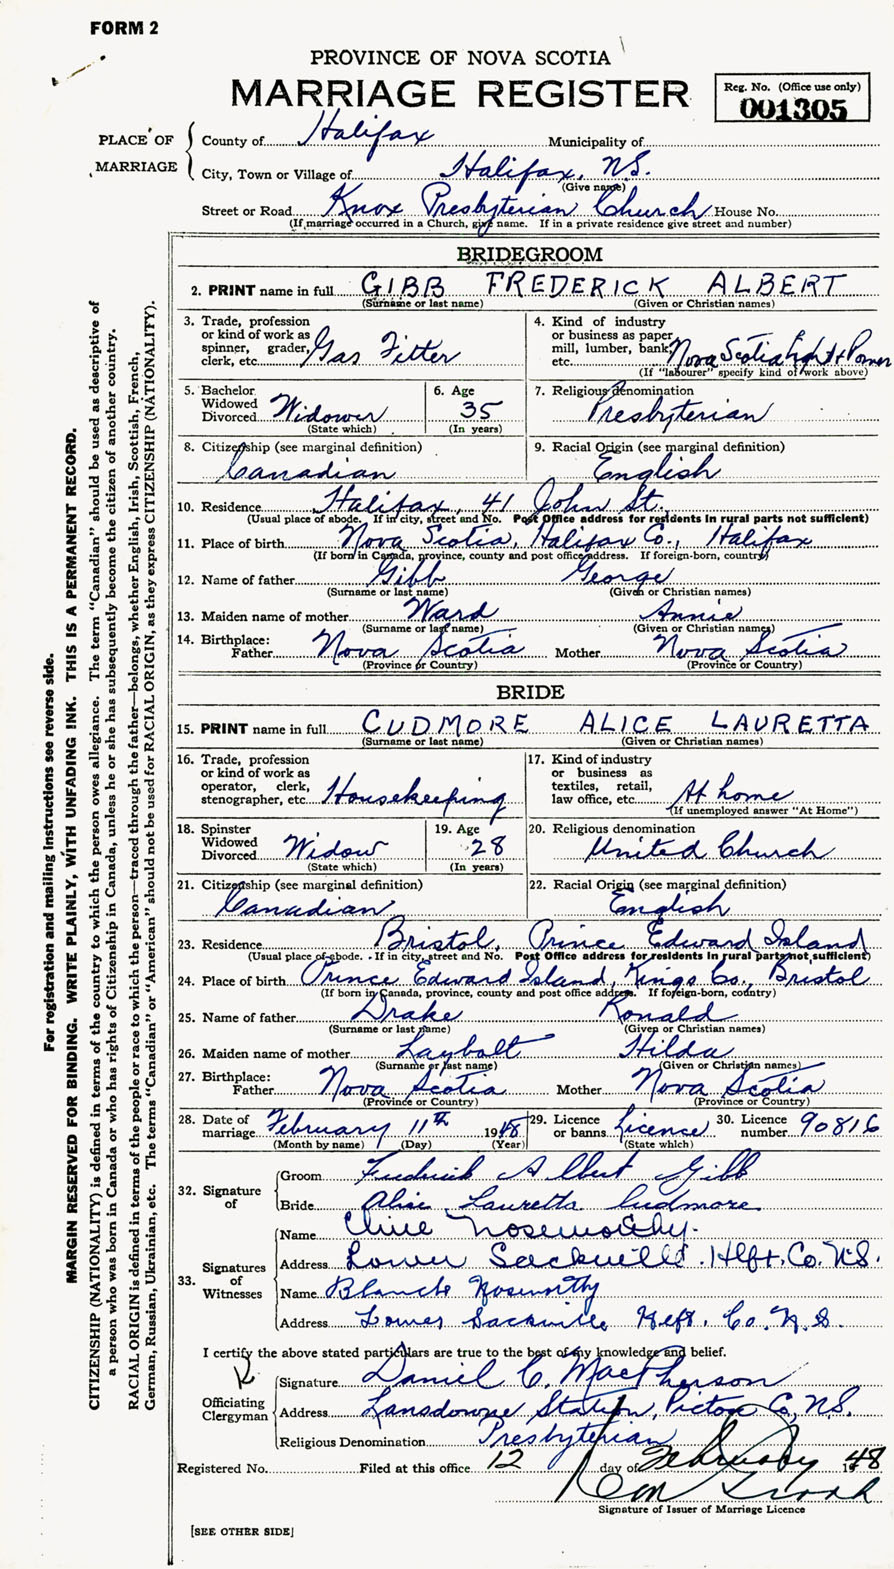 FORM 2
PROVINCE OF NOVA SCOTIA
MARRIAGE REGISTER
Reg. No. (Office use only)
001305
PLACE OF MARRIAGE
County of Halifax Municipality of
City, Town or Village of Halifax, N.S.
(Give name)
Street or Road Knox Presbyterian Church House No.
(If marriage occurred in a Church, give name. If in a private residence give street and number)
BRIDEGROOM
2. PRINT name in full GIBB FREDERICK ALBERT
(Surname or last name) (Given or Christian names)
3. Trade, profession or kind of work as spinner, grader, clerk, etc. Gas Fitter
4. Kind of industry or business as paper mill, lumber, bank, etc. Nova Scotia Light & Power
(If "labourer" specify kind of work above)
5. Bachelor Widowed Divorced Widower
(State which)
6. Age 35
(In years)
7. Religious denomination Presbyterian
8. Citizenship (see marginal definition) Canadian
9. Racial Origin (see marginal definition) English
10. Residence Halifax, 41 John St.
(Usual place of abode. If in city, street and No. Post Office address for residents in rural parts not sufficient)
11. Place of birth Nova Scotia, Halifax Co., Halifax
(If born in Canada, province, county and post office address. If foreign-born, country)
12. Name of father Gibb George
(Surname or last name) (Given or Christian names)
13. Maiden name of mother Ward Annie
(Surname or last name) (Given or Christian names)
14. Birthplace: Father Nova Scotia Mother Nova Scotia
(Province or Country) (Province or Country)
BRIDE
15. PRINT name in full CUDMORE ALICE LAURETTA
(Surname or last name) (Given or Christian names)
16. Trade, profession or kind of work as operator, clerk, stenographer, etc. Housekeeping
17. Kind of industry or business as textiles, retail, law office, etc. At home
(If unemployed answer "At Home")
18. Spinster Widowed Divorced Widow
(State which)
19. Age 28
(In years)
20. Religious denomination United Church
21. Citizenship (see marginal definition) Canadian
22. Racial Origin (see marginal definition) English
23. Residence Bristol, Prince Edward Island
(Usual place of abode. If in city, street and No. Post Office address for residents in rural parts not sufficient)
24. Place of birth Prince Edward Island, Kings Co., Bristol
(If born in Canada, province, county and post office address. If foreign-born, country)
25. Name of father Drake Ronald
(Surname or last name) (Given or Christian names)
26. Maiden name of mother Laybolt Hilda
(Surname or last name) (Given or Christian names)
27. Birthplace: Father Nova Scotia Mother Nova Scotia
(Province or Country) (Province or Country)
28. Date of marriage February 11th 1948
(Month by name) (Day) (Year)
29. Licence or banns Licence
(State which)
30. Licence number 90816
32. Signature of
Groom Fredrick Albert Gibb
Bride Alice Lauretta Cudmore
33. Signatures of Witnesses
Name Clive Noseworthy.
Address Lower Sackville. Hlfx. Co. N.S.
Name Blanche Noseworthy
Address Lower Sackville Hlfx. Co. N.S.
I certify the above stated particulars are true to the best of my knowledge and belief.
Officiating Clergyman
Signature Daniel C. MacPherson
Address Lansdowne Station, Pictou Co., N.S.
Religious Denomination Presbyterian
Registered No. Filed at this office 12 day of February 1948
Signature of Issuer of Marriage Licence
[SEE OTHER SIDE]
For registration and mailing instructions see reverse side.
MARGIN RESERVED FOR BINDING. WRITE PLAINLY, WITH UNFADING INK. THIS IS A PERMANENT RECORD.
CITIZENSHIP (NATIONALITY) is defined in terms of the country to which the person owes allegiance. The term "Canadian" should be used as descriptive of
a person who was born in Canada or who has rights of Citizenship in Canada, unless he or she has subsequently become the citizen of another country.
RACIAL ORIGIN is defined in terms of the people or race to which the person—traced through the father—belongs, whether English, Irish, Scottish, French,
German, Russian, Ukrainian, etc. The terms "Canadian" or "American" should not be used for RACIAL ORIGIN, as they express CITIZENSHIP (NATIONALITY).